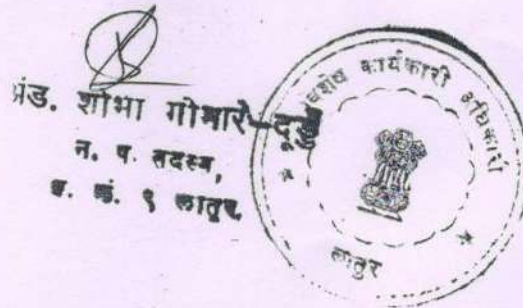 अ‍ॅड. शोभा गोमारे-दूडु
न. प. सदस्य,
व. कं. ९ लातूर.
विशेष कार्यकारी अधिकारी
लातूर